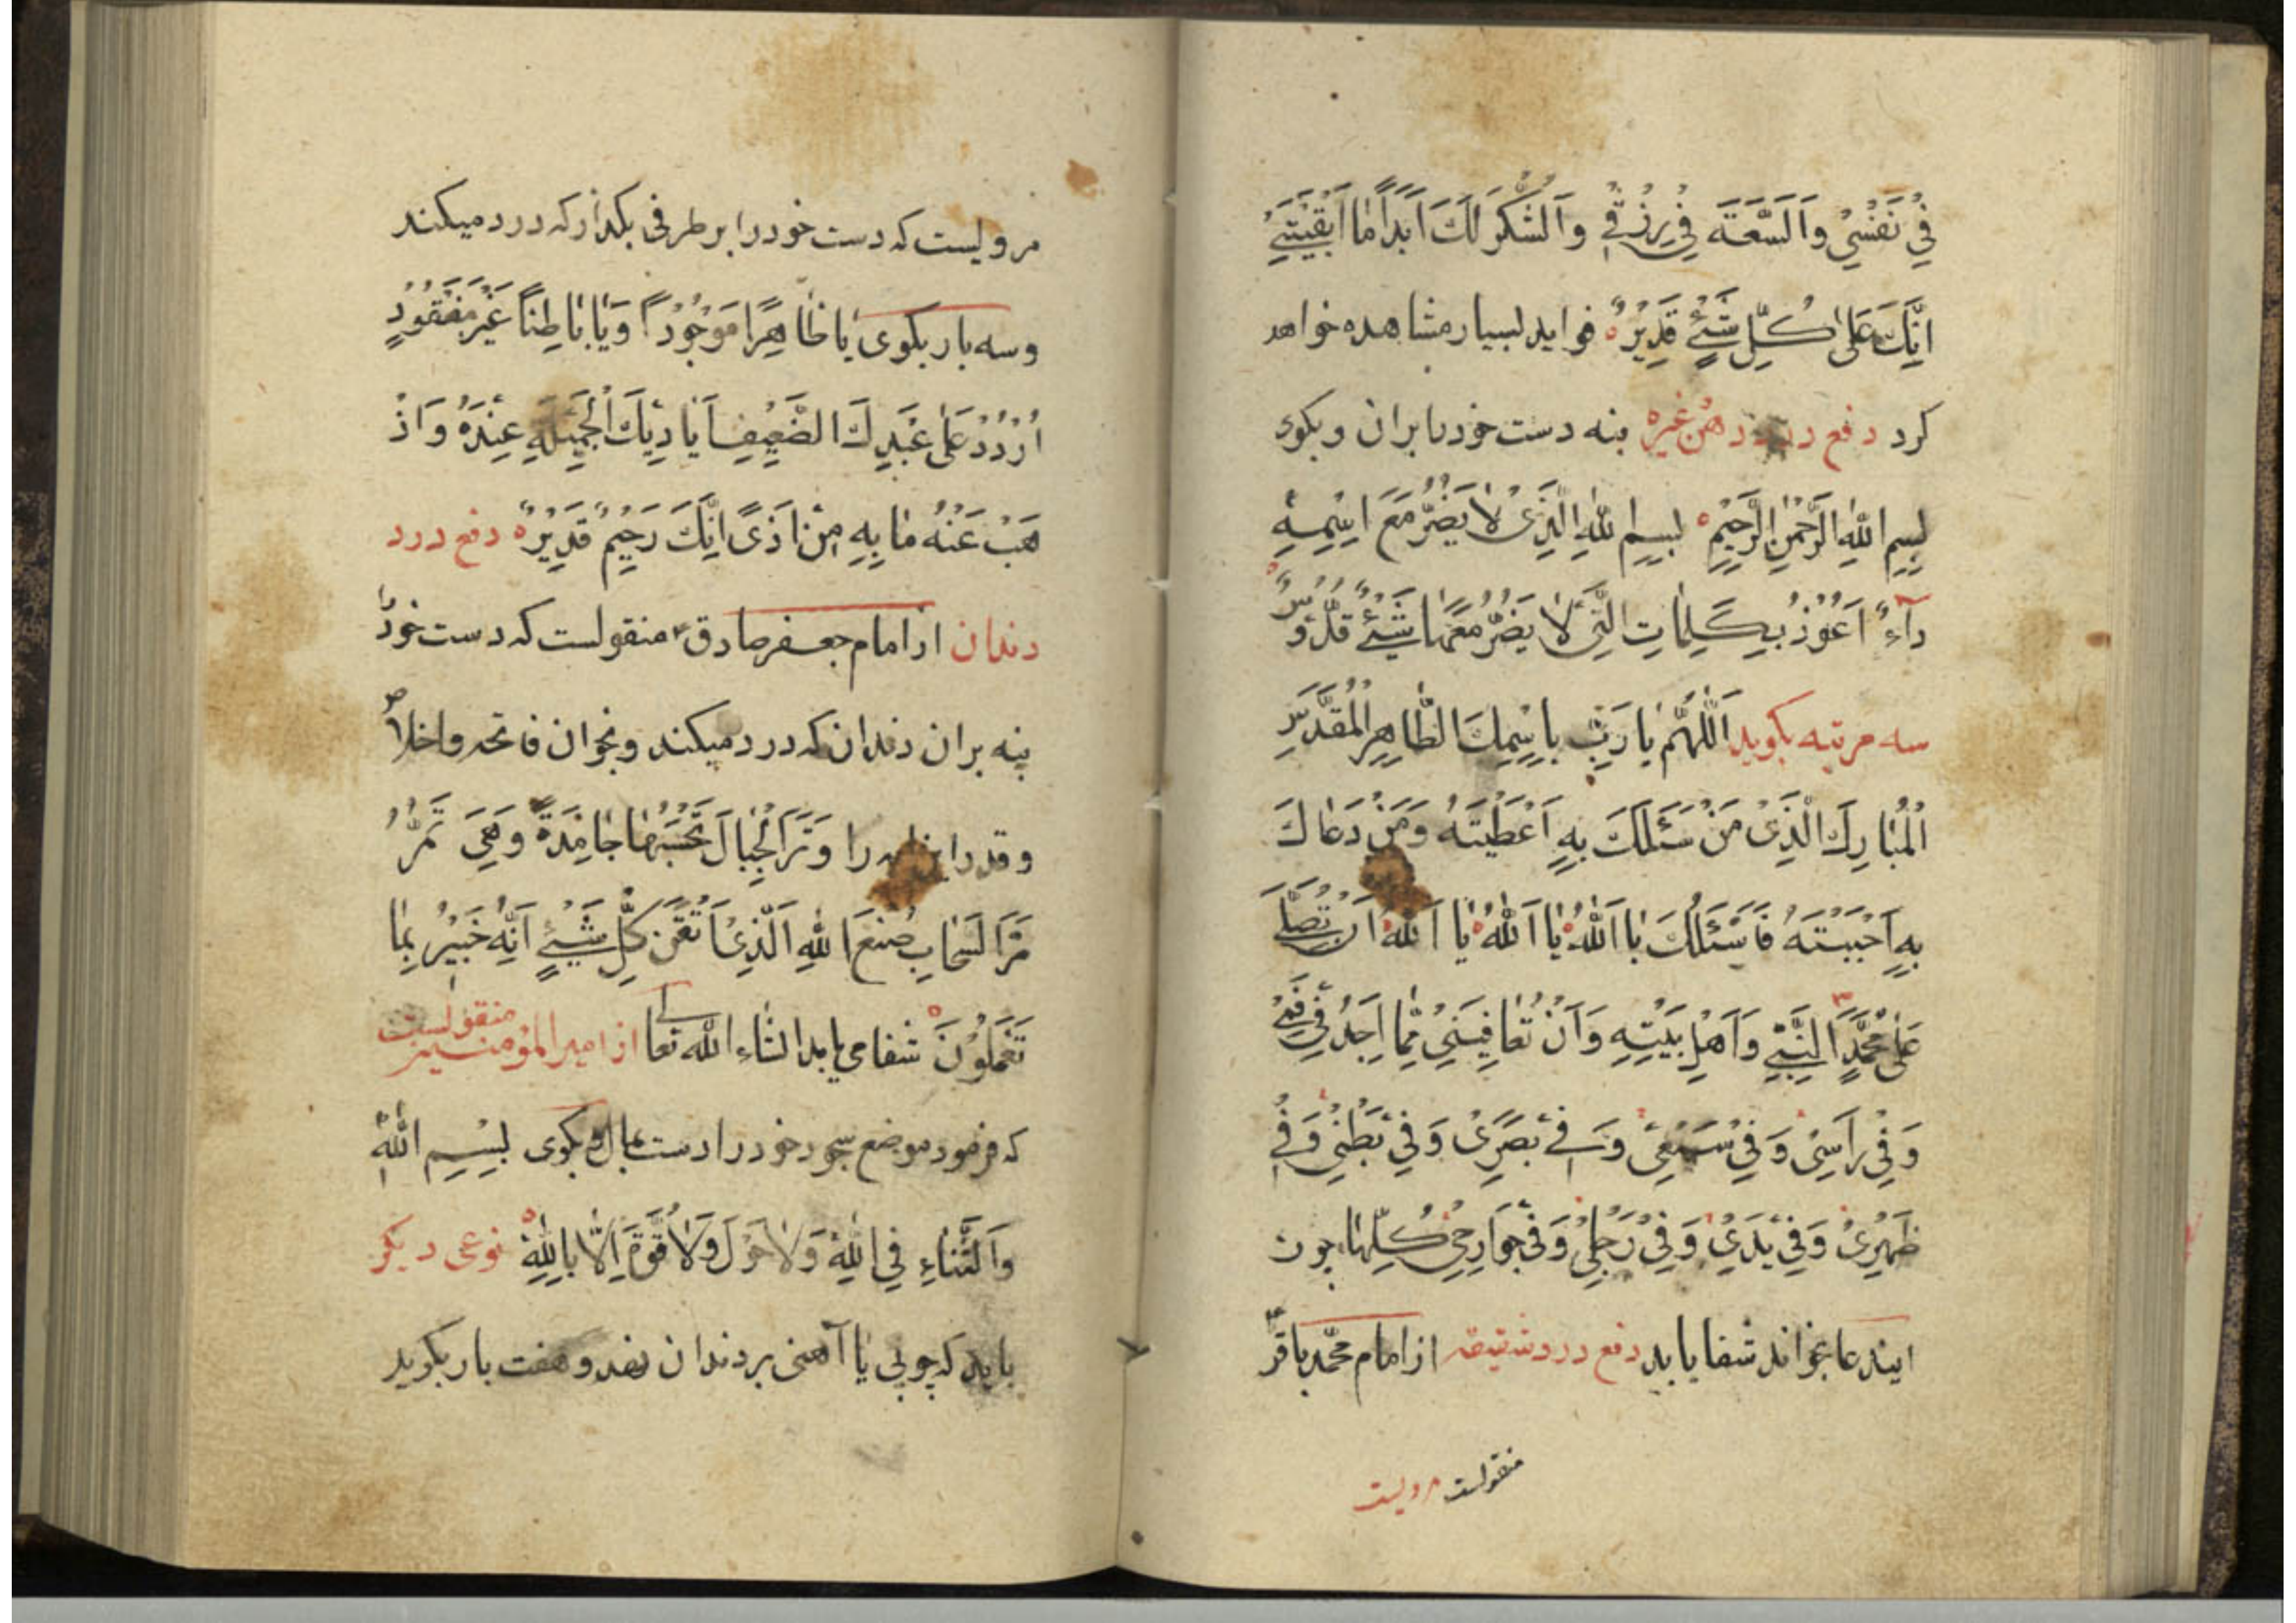 فِي نَفْسِي وَالسَّعَةَ فِي رِزْقِي وَالشُّكْرَ لَكَ اَبَدًا مَا اَبْقَيْتَنِي
اِنَّكَ عَلىٰ كُلِّ شَيْءٍ قَدِيرٌ فواید بسیار مشاهده خواهد
کرد دفع درد دهن غیره بنه دست خود را بران و بکوی
بِسْمِ اللهِ الرَّحْمٰنِ الرَّحِيمِ بِسْمِ اللهِ الَّذِي لَا يَضُرُّ مَعَ اسْمِهِ
دَآءٌ اَعُوذُ بِكَلِمَاتِ الَّتِي لَا يَضُرُّ مَعَهَا شَيْءٌ قُدُّوسٌ
سه مرتبه بکوید اَللّٰهُمَّ يَا رَبِّ بِاسْمِكَ الطَّاهِرِ الْمُقَدَّسِ
الْمُبَارَكِ الَّذِي مَنْ سَئَلَكَ بِهِ اَعْطَيْتَهُ وَمَنْ دَعَاكَ
بِهِ اَجَبْتَهُ فَاَسْئَلُكَ يَا اَللهُ يَا اَللهُ يَا اَللهُ اَنْ تُصَلِّيَ
عَلىٰ مُحَمَّدٍ النَّبِيِّ وَاَهْلِ بَيْتِهِ وَاَنْ تُعَافِيَنِي مِمَّا اَجِدُ فِي فَمِي
وَفِي رَاْسِي وَفِي سَمْعِي وَفِي بَصَرِي وَفِي بَطْنِي وَفِي
ظَهْرِي وَفِي يَدَيَّ وَفِي رِجْلِي وَفِي جَوَارِحِي كُلِّهَا چون
ایندعا بخواند شفا یابد دفع درد شقیقه از امام محمد باقر
منقولست مرویست
مرویست که دست خود را بر طرفی بکذار که درد میکند
و سه بار بکوی يَا ظَاهِرًا مَوْجُودًا وَيَا بَاطِنًا غَيْرَ مَفْقُودٍ
اُرْدُدْ عَلىٰ عَبْدِكَ الضَّعِيفِ اَيَادِيكَ الْجَمِيلَةِ عِنْدَهُ وَاَذْ
هِبْ عَنْهُ مَا بِهِ مِنْ اَذًى اِنَّكَ رَحِيمٌ قَدِيرٌ دفع درد
دندان از امام جعفر صادق ع منقولست که دست خود را
بنه بران دندان که درد میکند و بخوان فاتحه و اخلاص
و قدر را را وَتَرَى الْجِبَالَ تَحْسَبُهَا جَامِدَةً وَهِيَ تَمُرُّ
مَرَّ السَّحَابِ صُنْعَ اللهِ الَّذِي اَتْقَنَ كُلَّ شَيْءٍ اِنَّهُ خَبِيرٌ بِمَا
تَفْعَلُونَ شفا می یابد انشاء الله تعالی از امیر المؤمنین منقولست
که فرمود موضع سجود خود را دست بمال و بکوی بِسْمِ اللهِ
وَالثَّنَاءِ فِي اللهِ وَلَا حَوْلَ وَلَا قُوَّةَ اِلَّا بِاللهِ نوعی دیکر
باید که چوبی یا آهنی بر دندان نهد و هفت بار بکوید